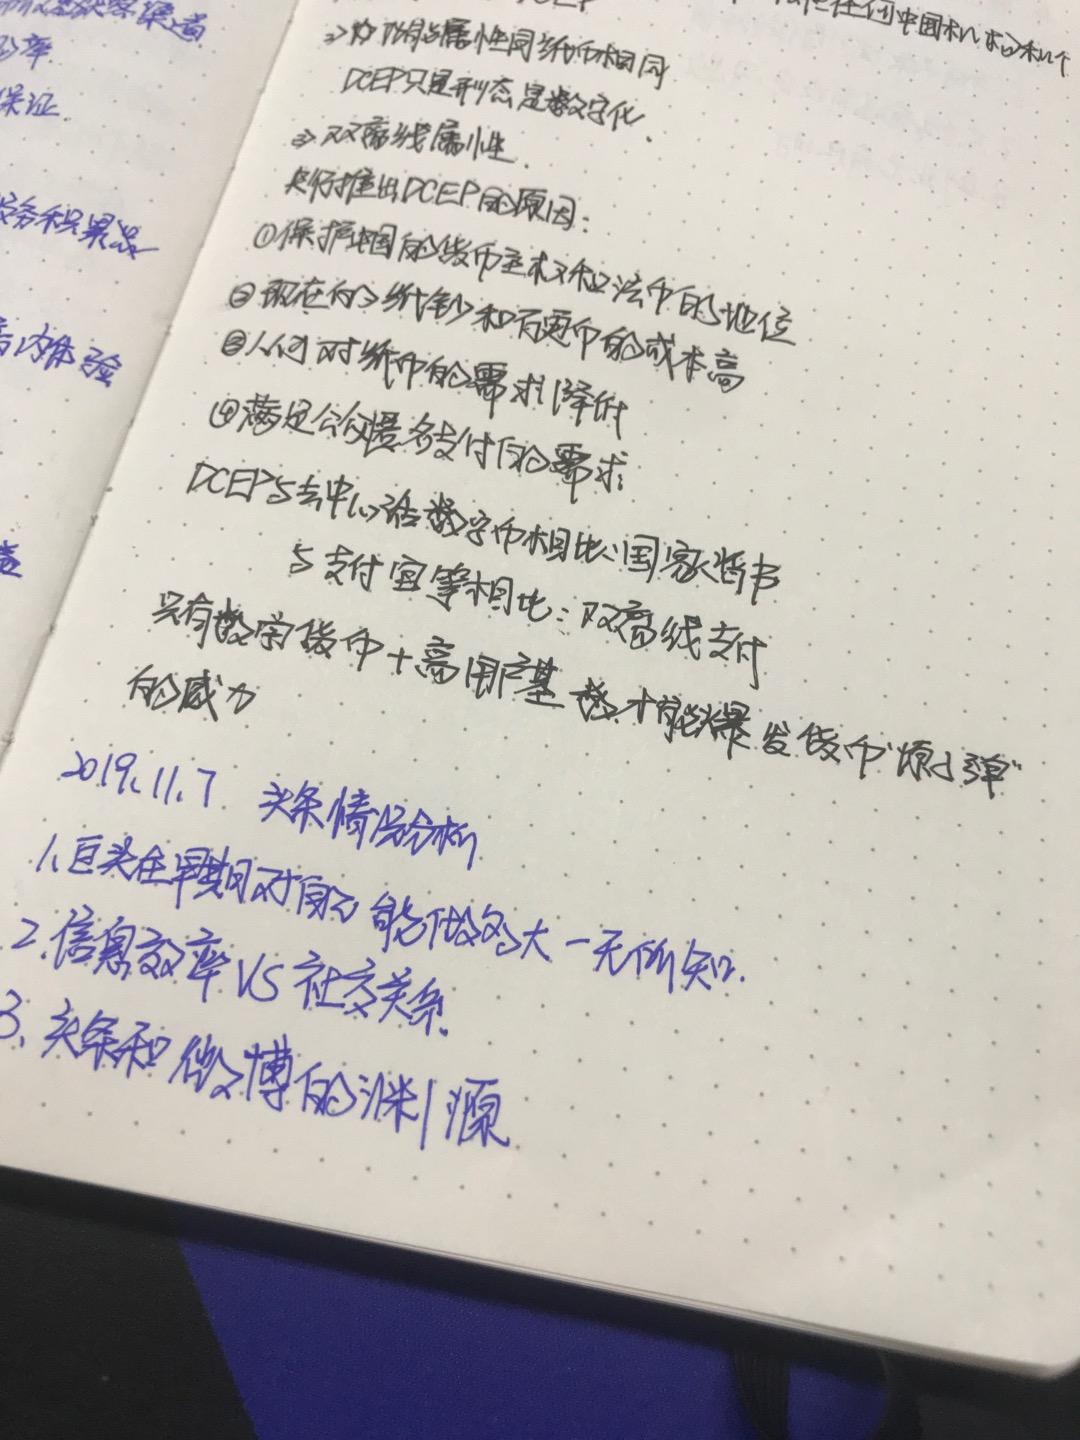 渠道
率
保证
务和只
内体验
任何中国机构和个
2>功能与属性同纸币相同
DCEP只是形态是数字化.
3>双离线属性.
央行推出DCEP的原因:
①保护中国的货币主权和法币的地位
②现在的纸钞和硬币的成本高
③人们对纸币的需求降低
④满足公众匿名支付的需求
DCEP与去中心话数字币相比:国家背书
与支付宝等相比:双离线支付
只有数字货币+高用户基数才能爆发货币"原子弹"
的威力
2019.11.7 头条情况分析
1.巨头在早期对自己能做多大一无所知.
2.信息效率VS社交关系.
3.头条和微博的渊源